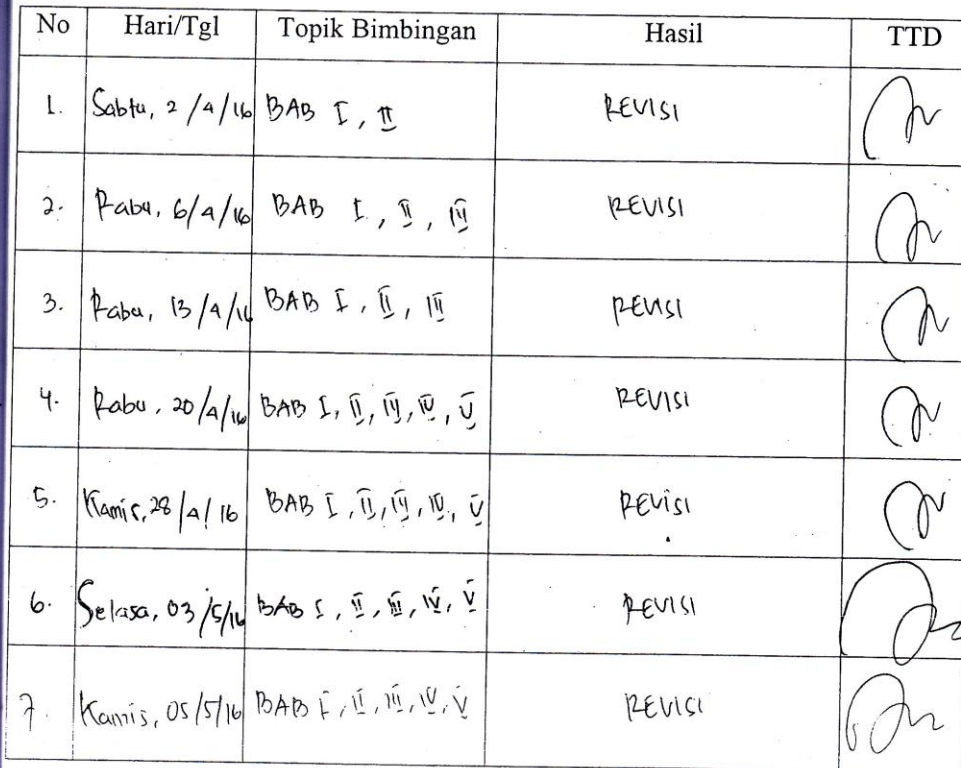 No Hari/Tgl Topik Bimbingan Hasil TTD
1. Sabtu, 2/4/16 BAB I, II REVISI
2. Rabu, 6/4/16 BAB I, II, III REVISI
3. Rabu, 13/4/16 BAB I, II, III REVISI
4. Rabu, 20/4/16 BAB I, II, III, IV, V REVISI
5. Kamis, 28/4/16 BAB I, II, III, IV, V REVISI
6. Selasa, 03/5/16 BAB I, II, III, IV, V REVISI
7. Kamis, 05/5/16 BAB I, II, III, IV, V REVISI